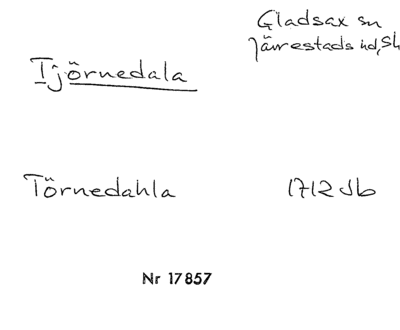 Gladsax sn
Järrestads hd, Sk
Tjörnedala
Törnedahla 1712 Jb
Nr 17857